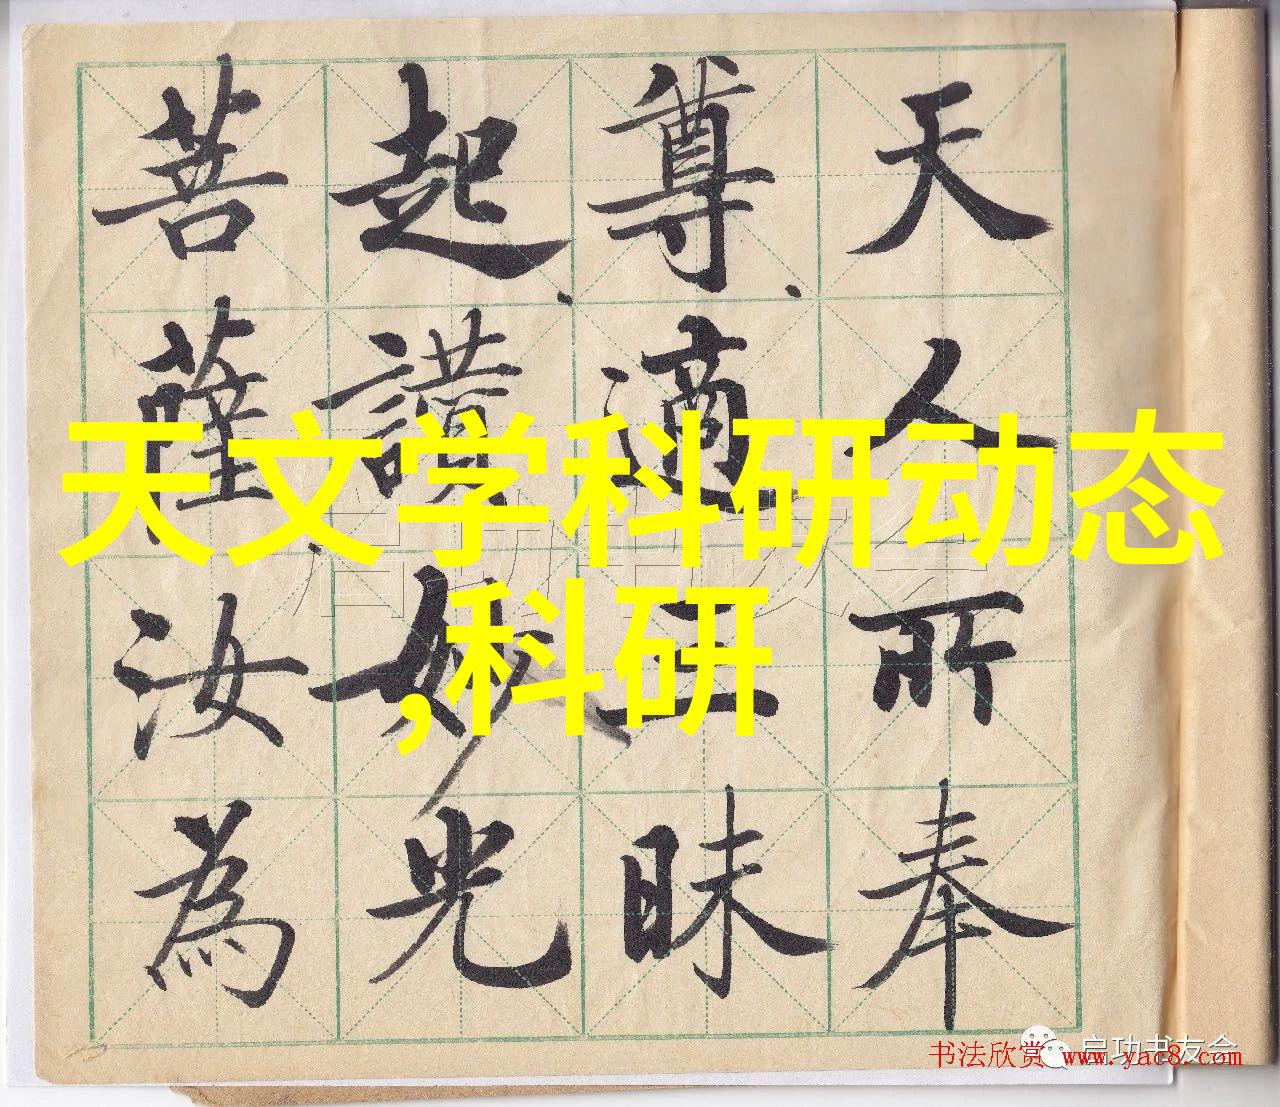 天人所奉
尊適三昧
起讚妙光
菩薩汝為
天文学科研动态
,科研
启功书友会
启功书友会
书法欣赏 www.yac8.com